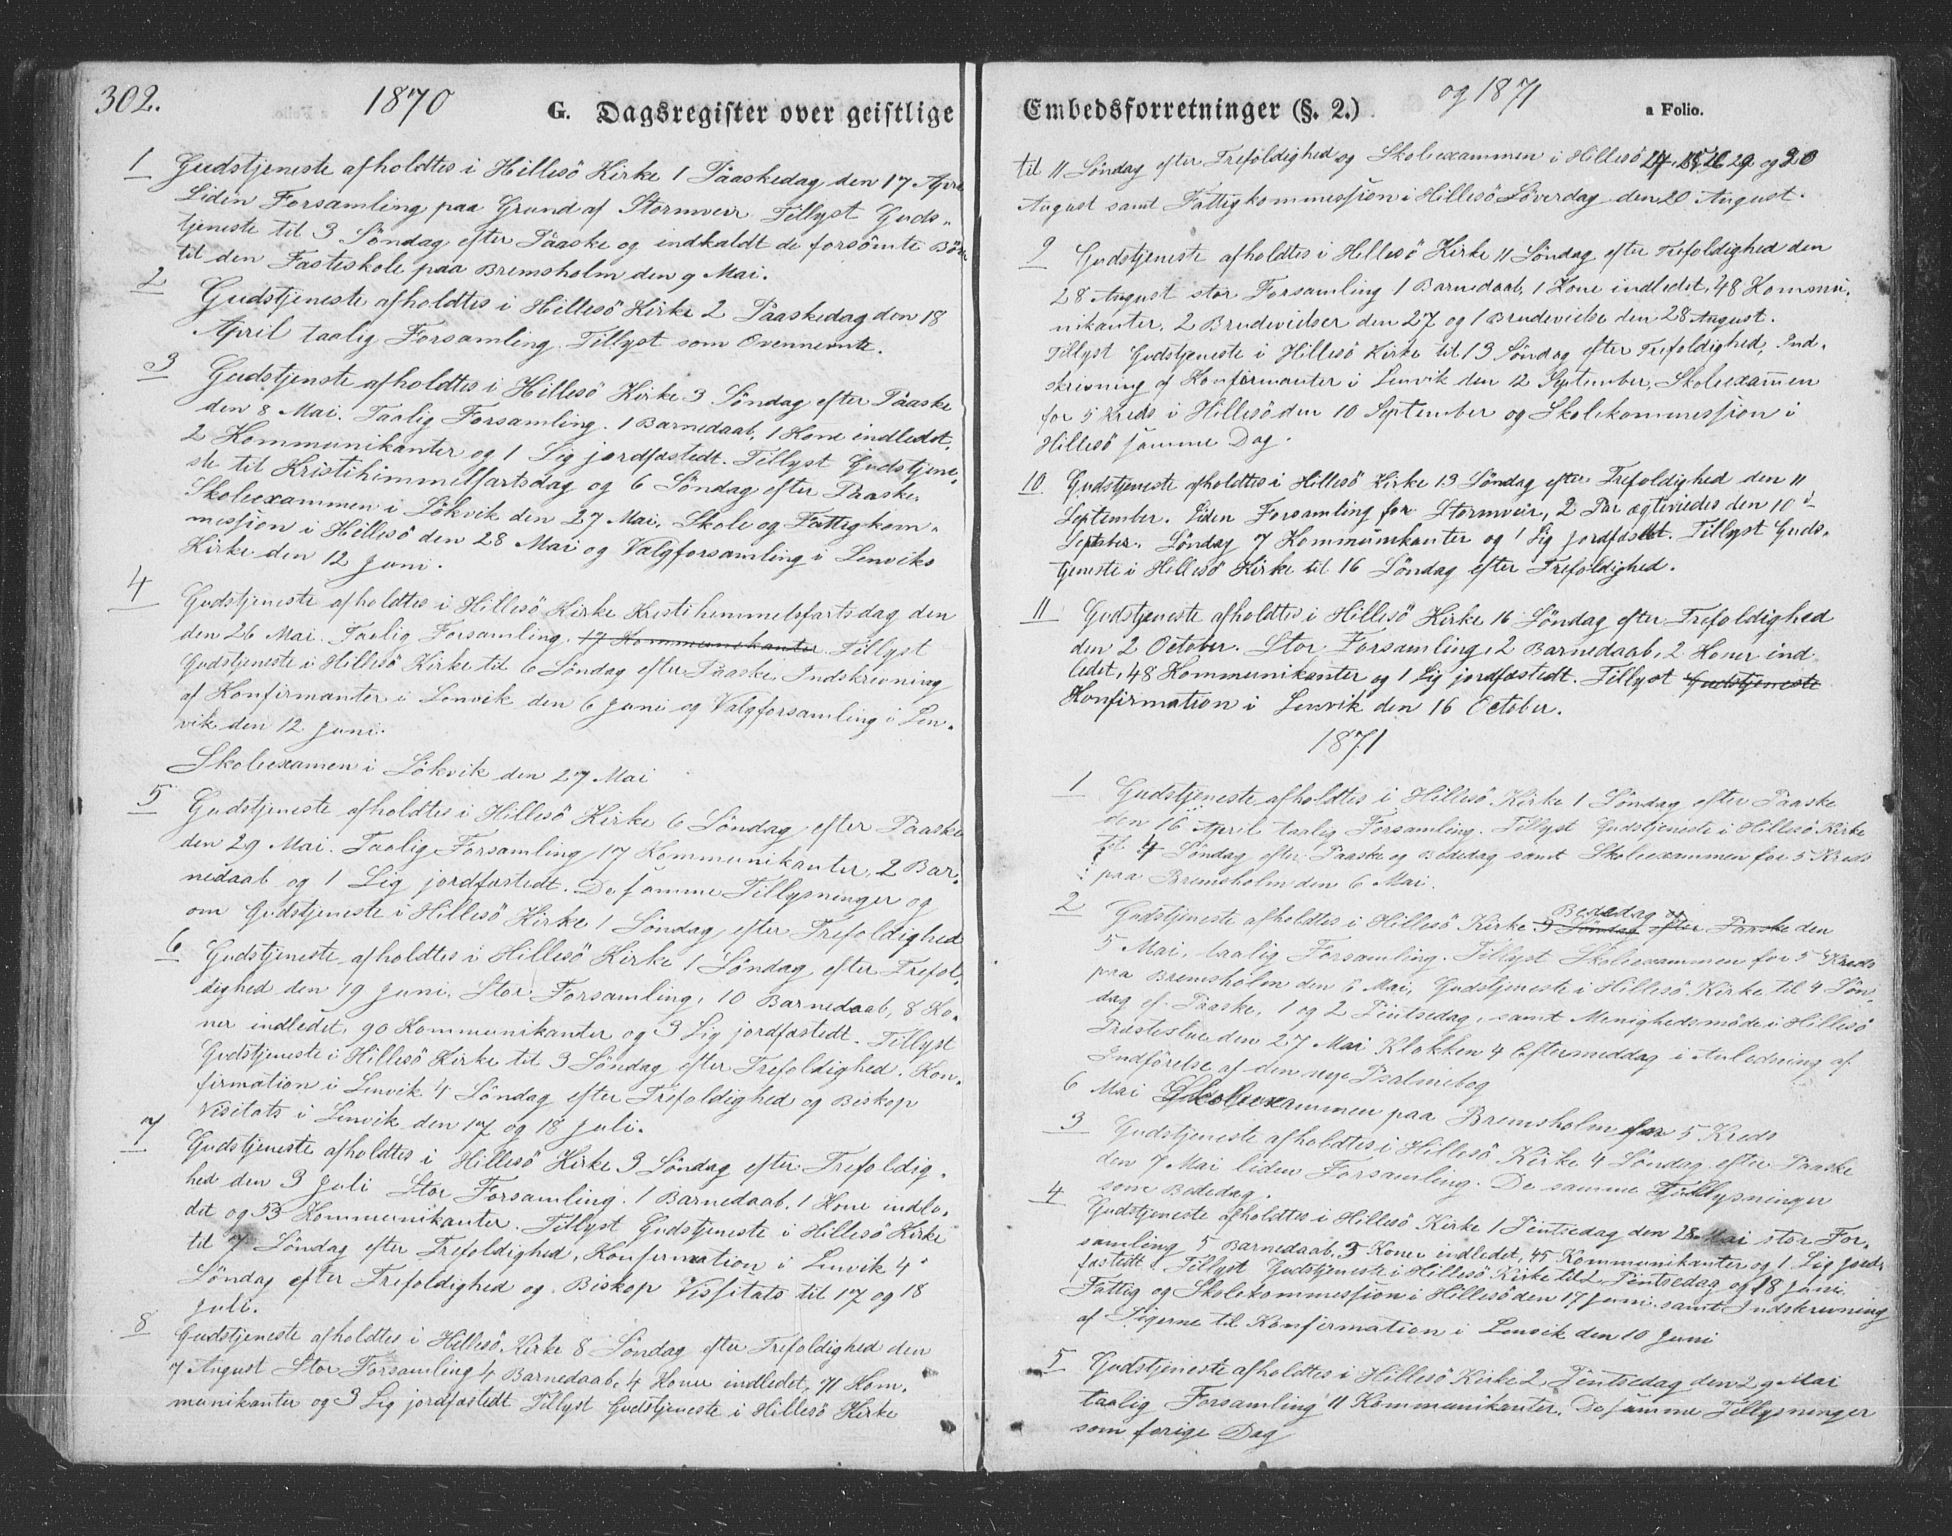 302. 1870 G. Dagsregister over geistlige
1 Gudstjeneste afholdtes i Hillesö Kirke 1 Paaskedag den 17 April
Liden Forsamling paa Grund af Stormveir. Tillyst Guds-
tjeneste til 3 Söndag efter Paaske og indkaldt de forsömte Börn
til den Fasteskole paa Bremsholm den 9 Mai.
2 Gudstjeneste afholdtes i Hillesö Kirke 2 Paaskedag den 18
April taalig Forsamling. Tillyst som Ovennemte.
3 Gudstjenste afholdtes i Hillesö Kirke 3 Söndag efter Paaske
den 8 Mai. Taalig Forsamling. 1 Barnedaab, 1 Kone indledet,
2 Kommunikanter og 1 Lig jordfæstedt. Tillyst Gudstjene-
ste til Kristihimmelfartsdag og 6 Söndag efter Paaske.
Skoleexammen i Lökvik den 27 Mai, Skole og Fattigkom-
mesjion i Hillesö den 28 Mai og Valgforsamling i Lenviks
Kirke den 12 Juni.
4 Gudstjeneste afholdtes i Hillesö Kirke Kristihimmelsfartsdag den
den 26 Mai. Taalig Forsamling. 17 Kommunikanter Tillyst
Gudstjeneste i Hillesö Kirke til 6 Söndag efter Paaske. Indskrivning
af Konfirmanter i Lenvik den 6 Juni og Valgforsamling i Len-
vik den 12 Juni.
Skoleexamen i Lökvik den 27 Mai
5 Gudstjeneste afholdtes i Hillesö Kirke 6 Söndag efter Paaske
den 29 Mai. Taalig Forsamling 17 Kommunikanter, 2 Bar-
nedaab og 1 Lig jordfæstedt. De samme Tillysninger og
om Gudstjeneste i Hillesö Kirke 1 Söndag efter Trefoldighed
6 Gudstjeneste afholdtes i Hillesö Kirke 1 Söndag efter Trefol-
dighed den 19 Juni. Stor Forsamling, 10 Barnedaab, 8 Ko-
ner indledet, 90 Kommunikanter og 3 Lig jordfæstedt. Tillyst
Gudstjeneste i Hillesö Kirke til 3 Söndag efter Trefoldighed. Kon-
firmation i Lenvik 4 Söndag efter Trefoldighed og Biskop
Visitats i Lenvik den 17 og 18 Juli.
7 Gudstjeneste afholdtes i Hillesö Kirke 3 Söndag efter Trefoldig-
hed den 3 Juli Stor Forsamling. 1 Barnedaab. 1 Kone indle-
det og 53 Kommunikanter. Tillyst Gudstjeneste i Hillesö Kirke
til 7 Söndag efter Trefoldighed, Konfirmation i Lenvik 4
Söndag efter Trefoldighed og Biskop Visfitats til 17 og 18
Juli.
8 Gudstjeneste afholdtes i Hillesö Kirke 8 Söndag efter Trefoldighed den
7 August Stor Forsamling 4 Barnedaab, 4 Koner indledet, 71 Kom-
munikanter og 3 Lig jordfæstedt Tillyst Gudstjeneste i Hillesö Kirke
Embedsforretninger (§. 2.) og 1871 a Folio.
til 11 Söndag efter Trefoldighed og Skoleexammen i Hillesö 29 og 20
August samt Fattigkommesjion i Hillesö Löverdag den 20 August.
9 Gudstjeneste afholdtes i Hillesö Kirke 11 Söndag efter Trefoldighed den
28 August stor Forsamling 1 Barnedaab, 1 Kone indledet, 48 Kommu-
nikanter, 2 Brudevidser den 27 og 1 Brudevielse den 28 August.
Tillyst Gudstjeneste i Hillesö Kirke til 13 Söndag efter Trefoldighed, Ind-
skrivning af Konfirmanter i Lenvik den 12 September, Skoleexam̄en
for 5 Kreds i Hillesö den 10 September og Skolekommesjion i
Hillesö samme Dag.
10 Gudstjeneste afholdtes i Hillesö Kirke 13 Söndag efter Trefoldighed den 11
September. Liden Forsamling for Stormveir, 2 Par ægteviedes den 10
September. Söndag 7 Kommunikanter og 1 Lig jordfæstt. Tillyst Guds-
tjeneste i Hillesö Kirke til 16 Söndag efter Trefoldighed.
11 Gudstjeneste afholdtes i Hillesö Kirke 16 Söndag efter Trefoldighed
den 2 October. Stor Forsamling, 2 Barnedaab, 2 Koner ind-
ledet, 48 Kommunikanter og 1 Lig jordfæstedt. Tillyst Gudstjeneste
Konfirmation i Lenvik den 16 October.
1871
1 Gudstjeneste afholdtes i Hillesö Kirke 1 Söndag efter Paaske
den 16 April taalig Forsamling. Tillyst Gudstjeneste i Hillesö Kirke
til 4 Söndag efter Paaske og Bededag samt Skoleexammen for 5 Kreds
paa Bremsholm den 6 Mai.
2 Gudstjeneste afholdtes i Hillesö Kirke 3 Söndag efter Paaske Bededag den
5 Mai, taalig Forsamling. Tillyst Skoleexammen for 5 Kreds
paa Bremsholm den 6 Mai, Gudstjeneste i Hillesö Kirke til 4 Sön-
dag ef. Paaske, 1 og 2 Pintsedag, samt Menighedsmöde i Hillesö
Præstestue den 27 Mai Klokken 4 Eftermeddag i Anledning af
Indförelse af den nye Psalmebog
6 Mai Skoleexammen paa Bremsholm for 5 Kreds
3 Gudstjeneste afholdtes i Hillesö Kirke 4 Söndag efter Paaske
den 7 Mai liden Forsamling. De samme Tillysninger
som Bededag.
4 Gudstjeneste afholdtes i Hillesö Kirke 1 Pintsedag den 28 Mai stor For-
samling 5 Barnedaab, 3 Koner indledet, 45 Kommunikanter og 1 Lig jord-
fæstedt. Tillyst Gudstjeneste i Hillesö Kirke til 2 Pintsedag og 18 Juni.
Fattig og Skolekommesfion i Hillesö den 17 Juni samt Indskrivning
af Pigerne til Konfirmation i Lenvik den 10 Juni
5 Gudstjeneste afholdtes i Hillesö Kirke 2 Pintsedag den 29 Mai
taalig Forsamling 11 Kommunikanter. De samme Tillysninger
som forige Dag